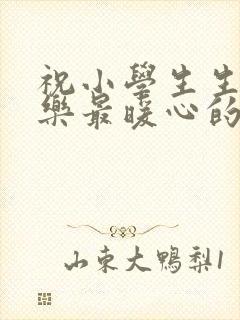 祝小學生生
樂最暖心的
山東大鴨梨1